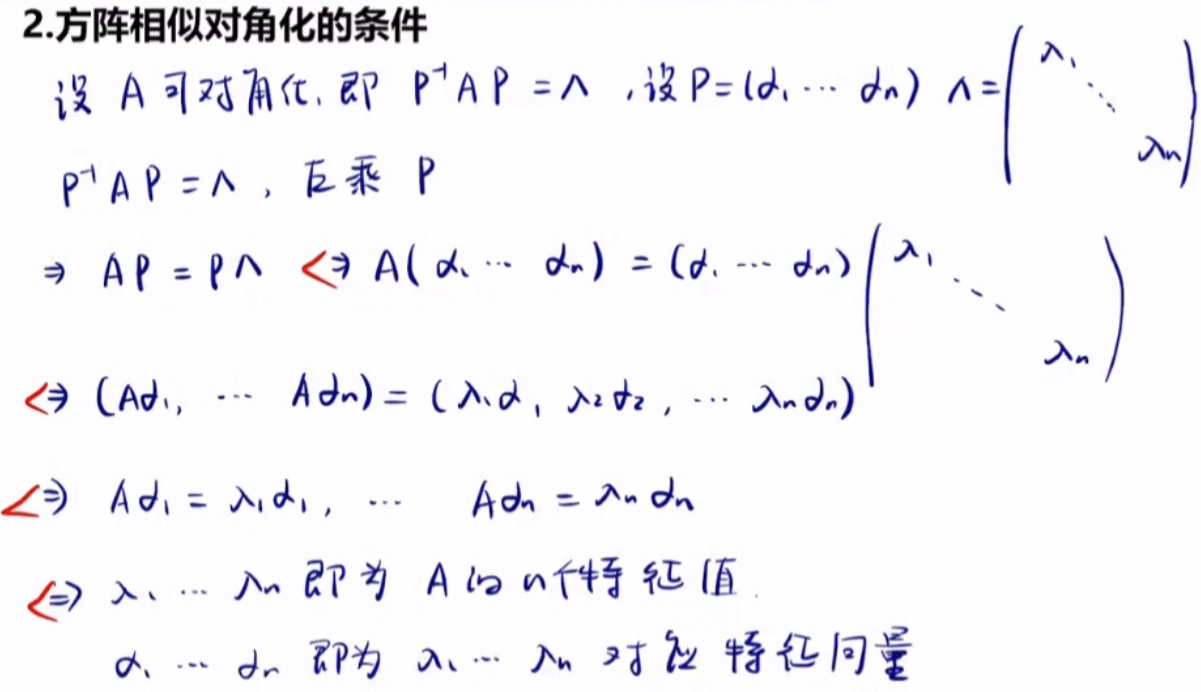 2.方阵相似对角化的条件
设 A 可对角化, 即 P⁻¹AP = Λ, 设 P = (α₁ ⋯ αₙ) Λ = (λ₁ ⋱ λₙ)
P⁻¹AP = Λ, 左乘 P
⇒ AP = PΛ ⇔ A(α₁ ⋯ αₙ) = (α₁ ⋯ αₙ) (λ₁ ⋱ λₙ)
⇔ (Aα₁, ⋯ Aαₙ) = (λ₁α₁, λ₂α₂, ⋯ λₙαₙ)
⇔ Aα₁ = λ₁α₁, ⋯ Aαₙ = λₙαₙ
⇔ λ₁ ⋯ λₙ 即为 A的n个特征值.
α₁ ⋯ αₙ 即为 λ₁ ⋯ λₙ 对应特征向量